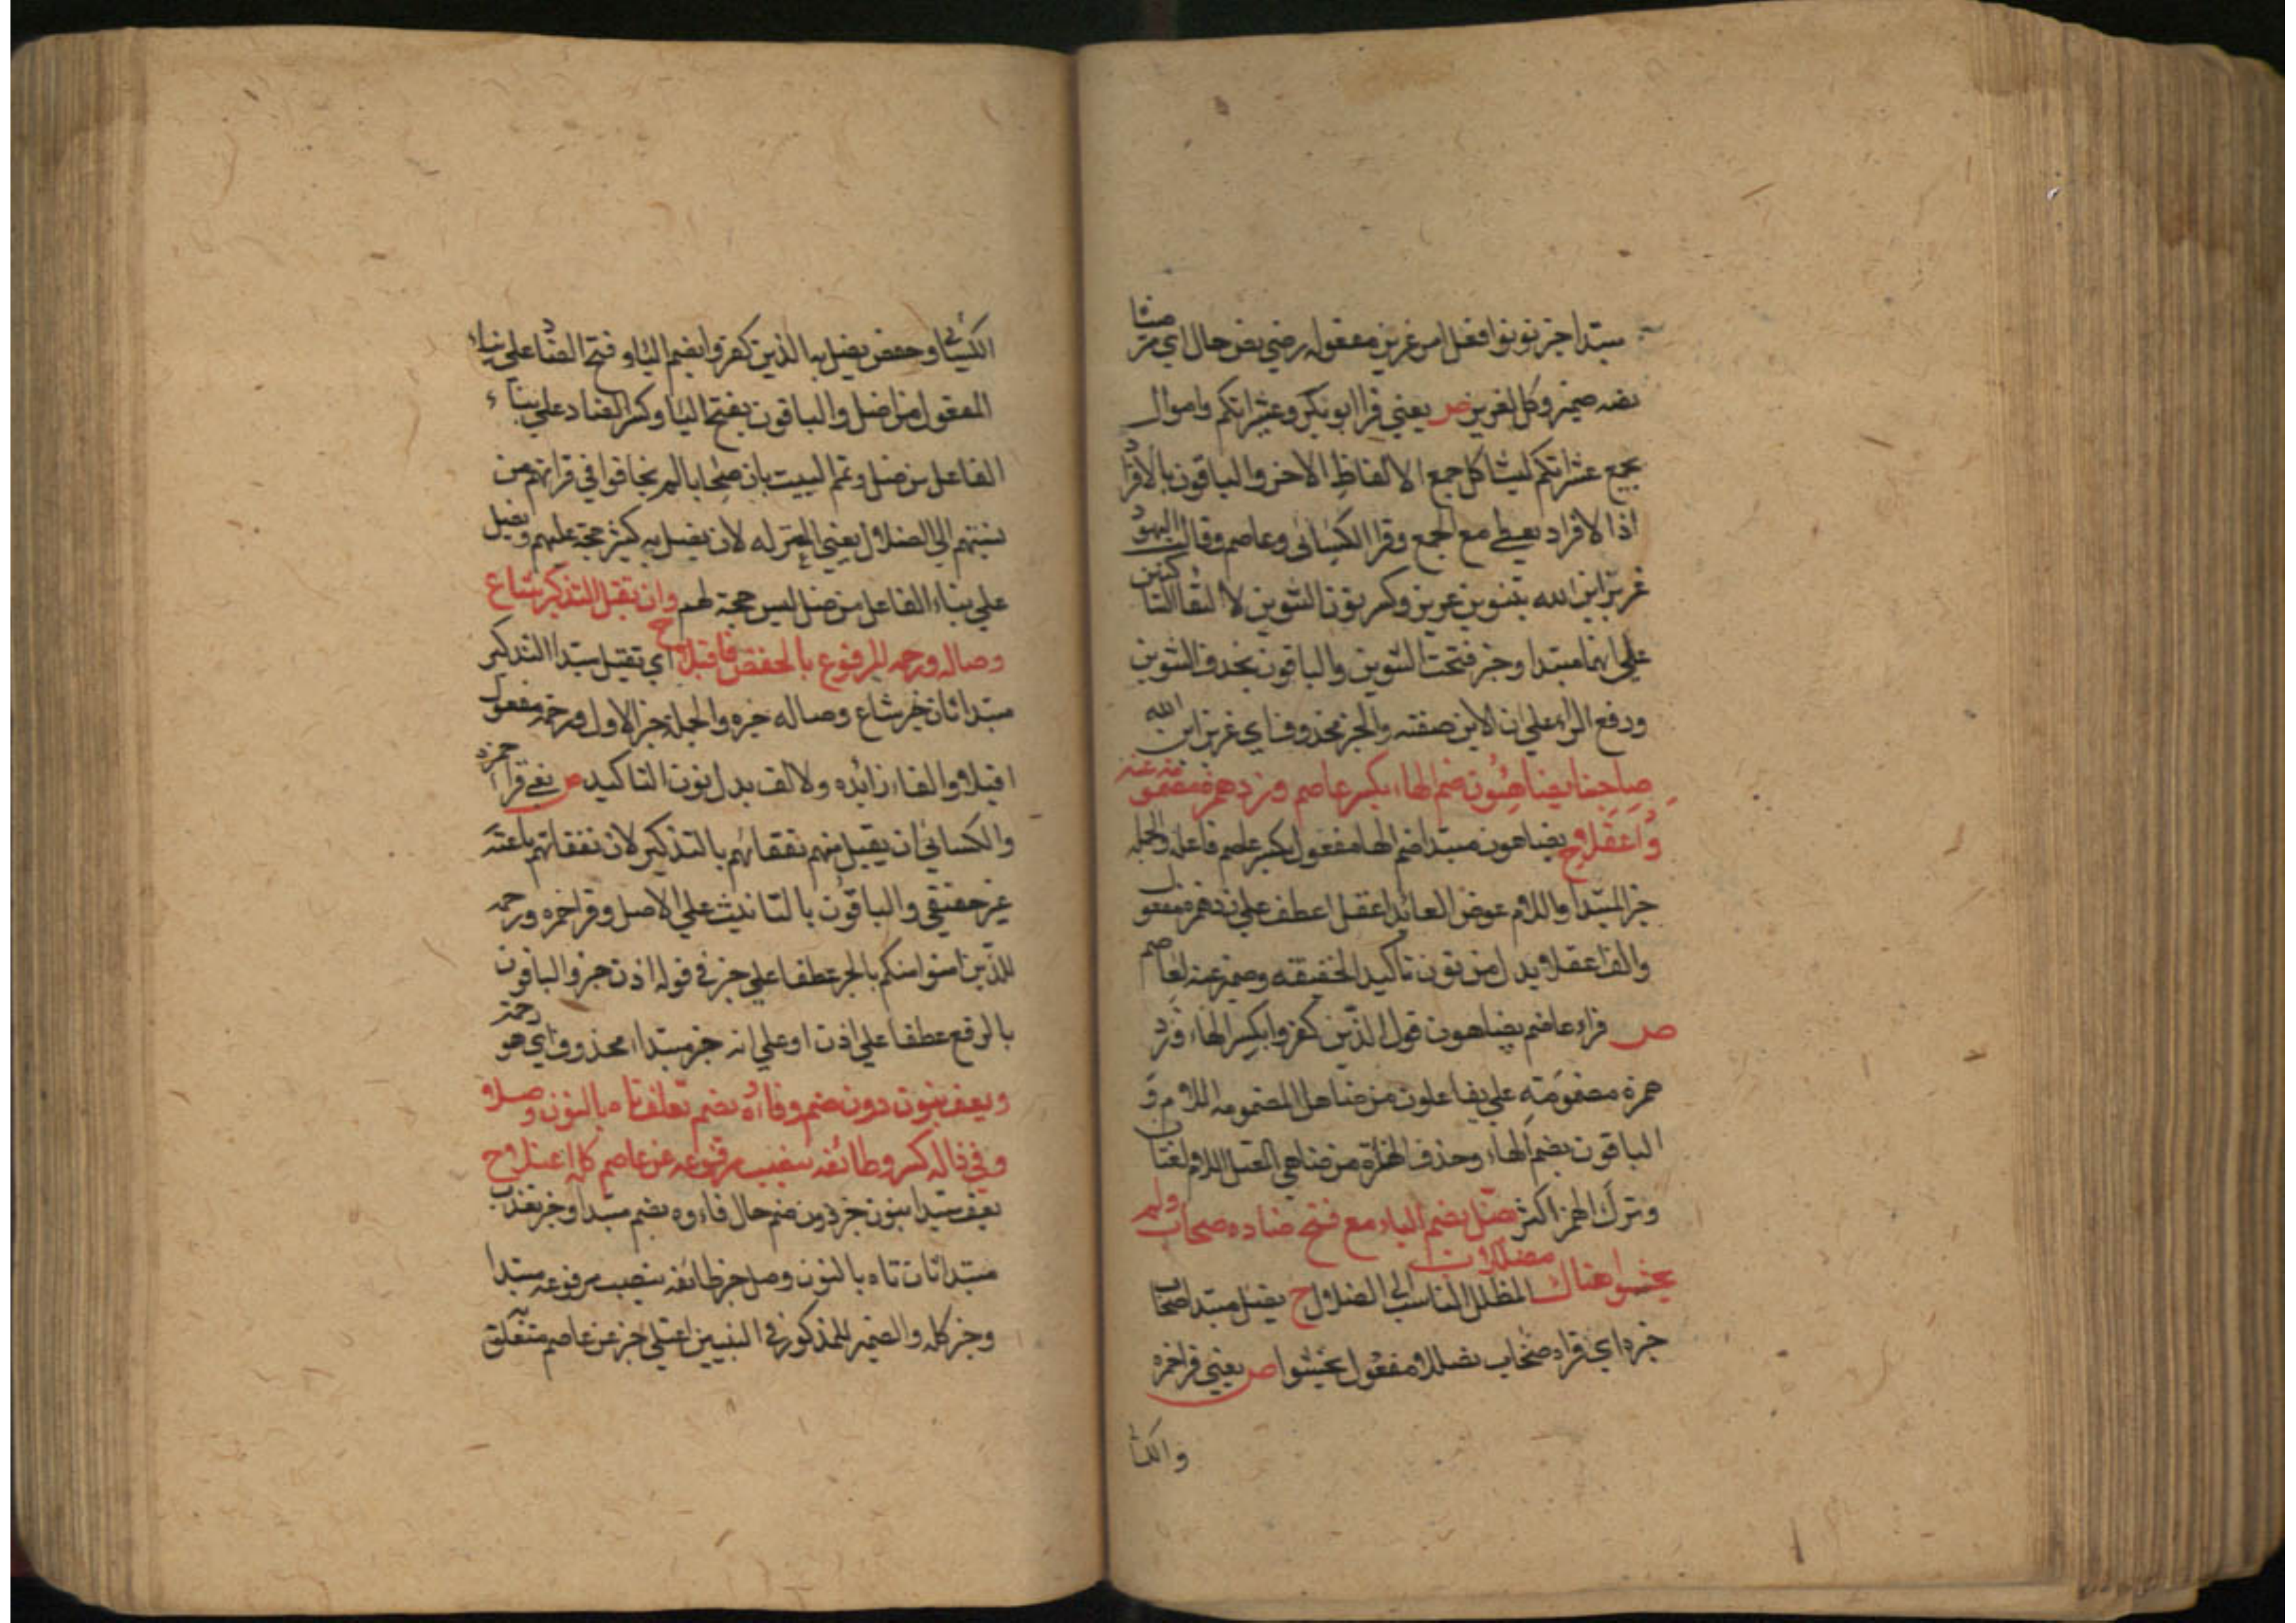 مبتدا خبر نونوا فعل امر عزير مفعوله رضي نص حال اي مرضيا
نصه صميز وكل لعزير ص يعني قرا ابو بكر وعشيراتكم واموال
بجمع عشيراتكم ليشاكل جمع الالفاظ الاخر والباقون بالافراد
اذا لافراد يعطي مع الجمع وقرا الكسائي وعاصم وقالت اليهود
عزير ابن الله بتنوين عزير وكسر نون التنوين لالتقا الساكنين
علي انهما مبتدا وخبر فتحت التنوين والباقون بحذف التنوين
ورفع الرا علي ان الابن صفته والخبر محذوف اي عزير ابن الله
يضاهئون ضم الهاء يكسر عاصم وزد همزة مضمومة عنه
واعقلا ح يضاهون مبتدا ضم الها مفعول يكسر عاصم فاعله والجمله
خبر المبتدا واللام عوض العائد اعقلا عطف علي زد همزة مفعول
والف اعقلا بدل من نون تاكيد الخفيفه وضمير عنه لعاصم
ص قراء عاصم يضاهون قول الذين كفروا بكسر الهاء وزد
همزة مضمومة علي يفاعلون من ضاهل المضمومه اللام و
الباقون بضم الهاء وحذف الهمزة من ضاهي المعتل اللام لغتان
وترك الهمز اكثر يضل بضم الياء مع فتح ضاده صحاب ولم
يخشوا هناك مضللا ت المظلل الناسب الي الضلال ح يضل مبتدا صحاب
خبره اي قراءه صحاب مضللا مفعول يخشوا ص يعني قرا حمزه
والكسا
الكسائي وحفص يضل به الذين كفروا بضم اليا وفتح الضاد علي بناء
المفعول من اضل والباقون بفتح اليا وكسر الضاد علي بناء
الفاعل من ضل وتم البيت بان صحابا لم يخافوا في قراتهم من
نسبتهم الي الضلال يعني المعتزله لان يضل به كثير حجة عليهم ويضل
علي بناء الفاعل من ضل ليس حجة لهم وان تقبل التذكير شاع
وصاله ورحمه المرفوع بالخفض فاقبلا ح اي تقبل مبتدا التذكير
مبتدا ثان خبر شاع وصاله خبره والجملة خبر الاول ورحمة مفعول
اقبلا والفاء زائده والالف بدل نون التاكيد ص يعني قرا حمزه
والكسائي ان يقبل منهم نفقاتهم بالتذكير لان نفقاتهم باعته
غير حقيقي والباقون بالتانيث علي الاصل وقرا حمزه ورحمه
للذين امنوا منكم بالجر عطفا علي خير في قوله اذن خير والباقون
بالرفع عطفا علي اذن او علي انه خبر مبتداء محذوف اي هو رحمة
ويعف بنون دون ضم وفاؤه يضم تعذب تاه بالنون وصلا
وفي ذاله كسر وطائفه بنصب مرفوعه عن عاصم كله اعتلا ح
يعف مبتدا بنون خبر دون ضم حال فاءوه يضم مبتدا وخبر تعذب
مبتدا ثان تاه بالنون وصل خبر طائفه بنصب مرفوعه مبتدا
وخبر كله والضمير للمذكور في البيتين اعتلي خبر عن عاصم متعلق به